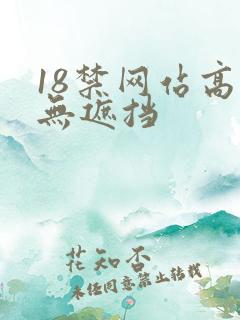 18禁网佔高
無遮挡
花知否
未经同意禁止转载